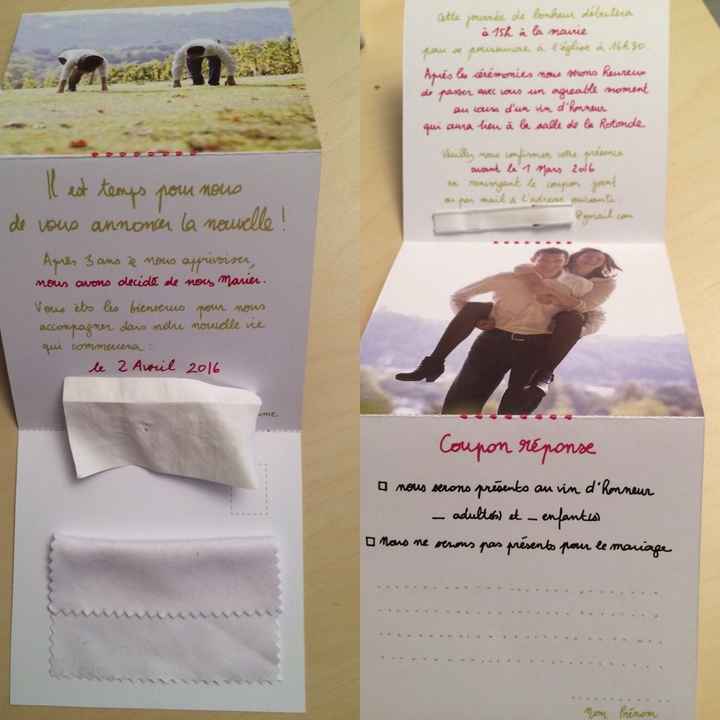 Il est temps pour nous
de vous annoncer la nouvelle !
Après 3 ans à nous apprivoiser,
nous avons decidé de nous Marier.
Vous êts les bienvenus pour nous
accompagner dans notre nouvelle vie
qui commencera :
le 2 Avril 2016
Cette journée de bonheur débutera
à 15h à la mairie
pour se poursuivre à l'église à 16h30.
Après les cérémonies nous serons heureux
de passer avec vous un agreable moment
au cours d'un vin d'honneur
qui aura lieu à la salle de la Rotonde.
Veuillez nous confirmer votre présence
avant le 1 Mars 2016
en renvoyant le coupon joint
ou par mail à l'adresse suivante
@gmail.com
Coupon réponse
nous serons présents au vin d'honneur
_ adulte(s) et _ enfant(s)
Nous ne serons pas présents pour le mariage
Nom Prénom